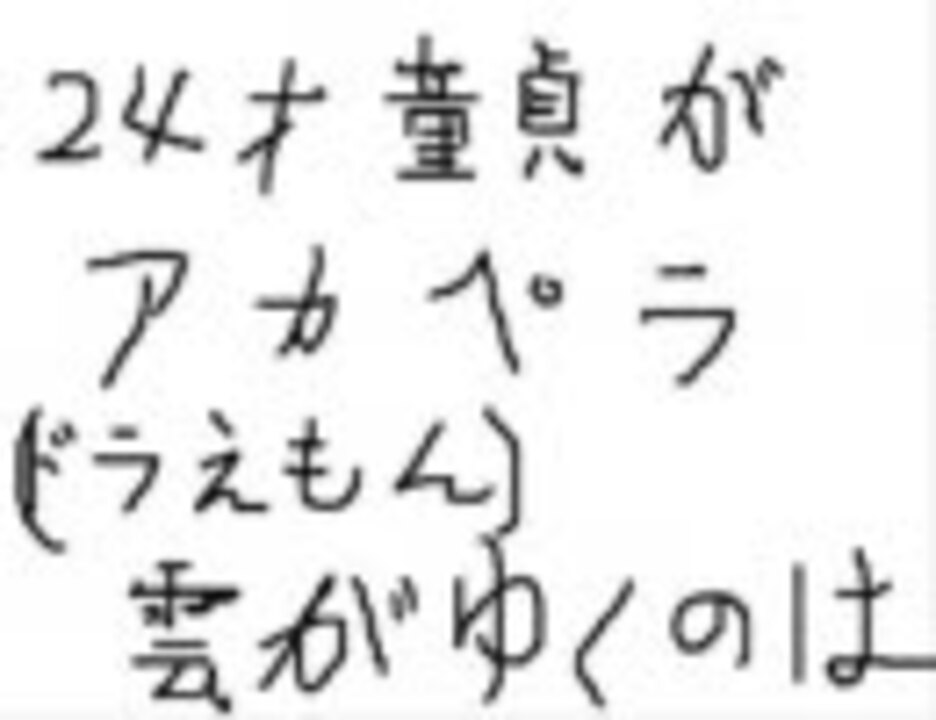 24才童貞が
アカペラ
(ドラえもん)
雲がゆくのは